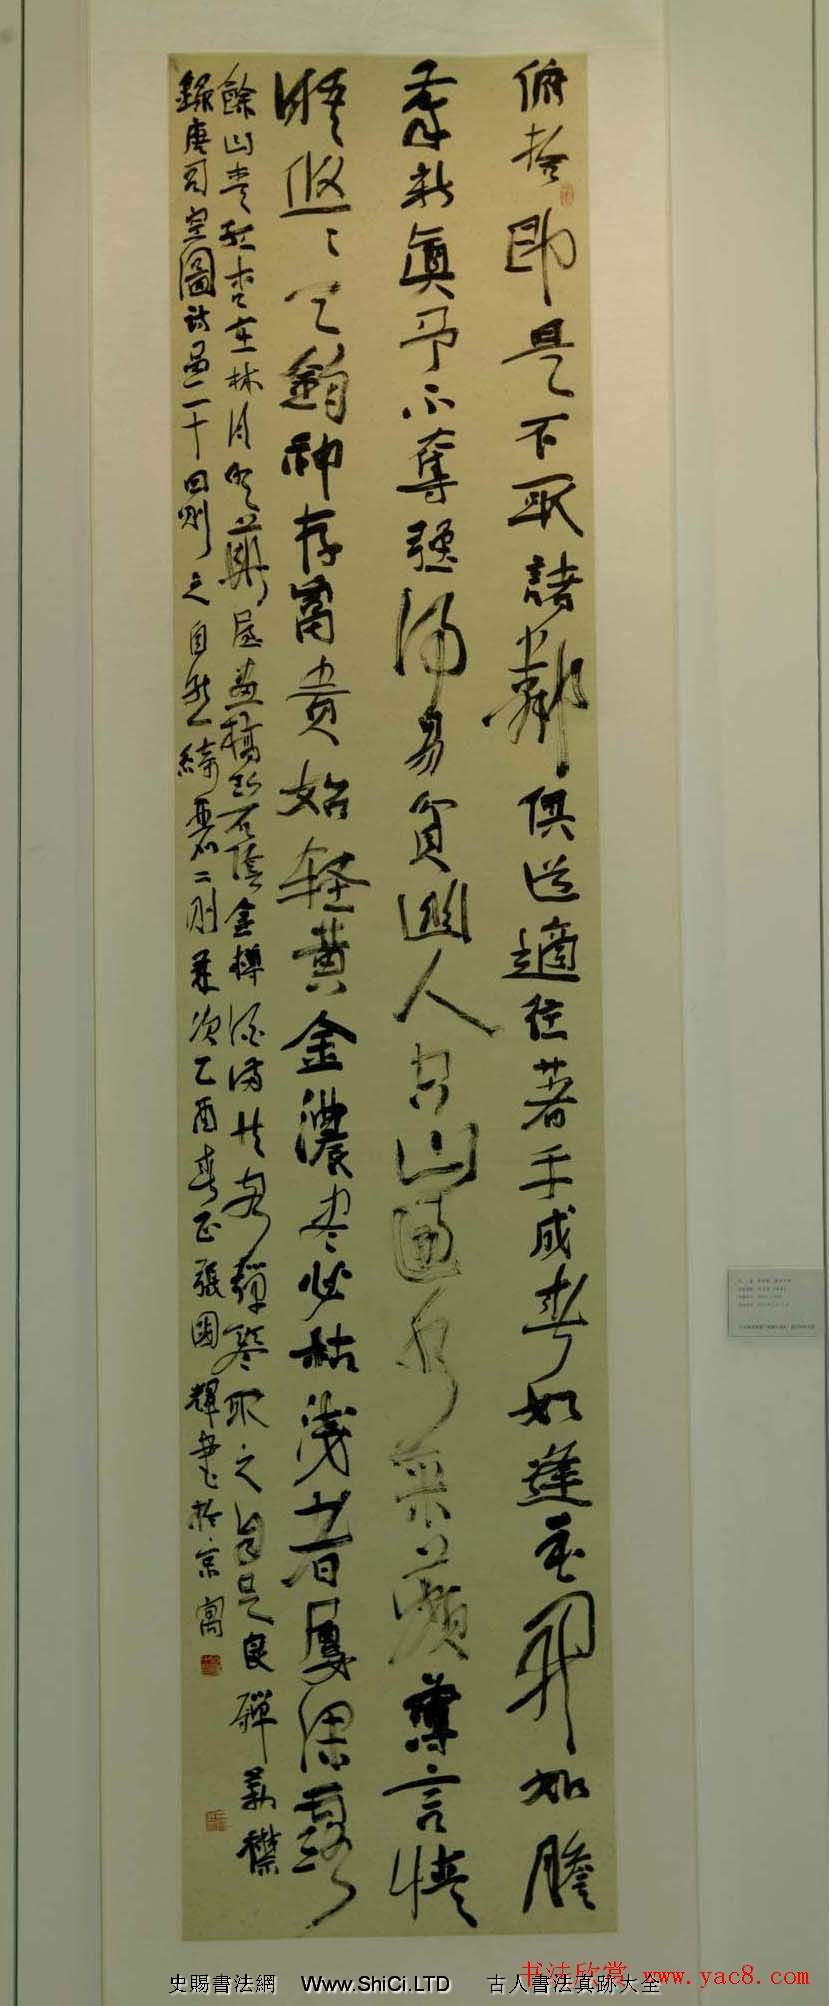 俯拾即是不取諸鄰俱道適往著手成春如逢花開如瞻
歲新真予不奪強得易貧幽人空山過水采蘋薄言情
晤悠々天鈞神存富貴始輕黃金濃盡必枯淺者屢深露
餘山青紅杏在林月明華屋畫橋碧陰金樽酒滿共客彈琴取之自足良殫美襟
錄唐司空圖詩品二十四則之自然綺麗二則歲次乙酉春正張國輝書於京寓
史賜書法網 Www.ShiCi.LTD 古人書法真跡大全
书法欣赏 www.yac8.com